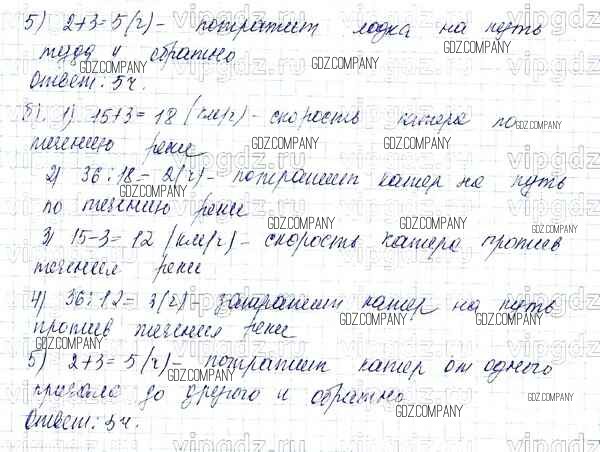 5) 2+3=5(г) - потратит лодка на путь
туда и обратно
Ответ: 5 ч.
б) 1) 15+3= 18 (км/г) - скорость катера по
течению реки
2) 36:18 = 2(г) - потратит катер на путь
по течению реки
3) 15-3= 12 (км/г) - скорость катера против
течения реки
4) 36:12= 3(г) - затратит катер на путь
против течения реки
5) 2+3= 5(г) - потратит катер от одного
причала до другого и обратно
Ответ: 5 ч.
GDZ.COMPANY
vipgdz.ru